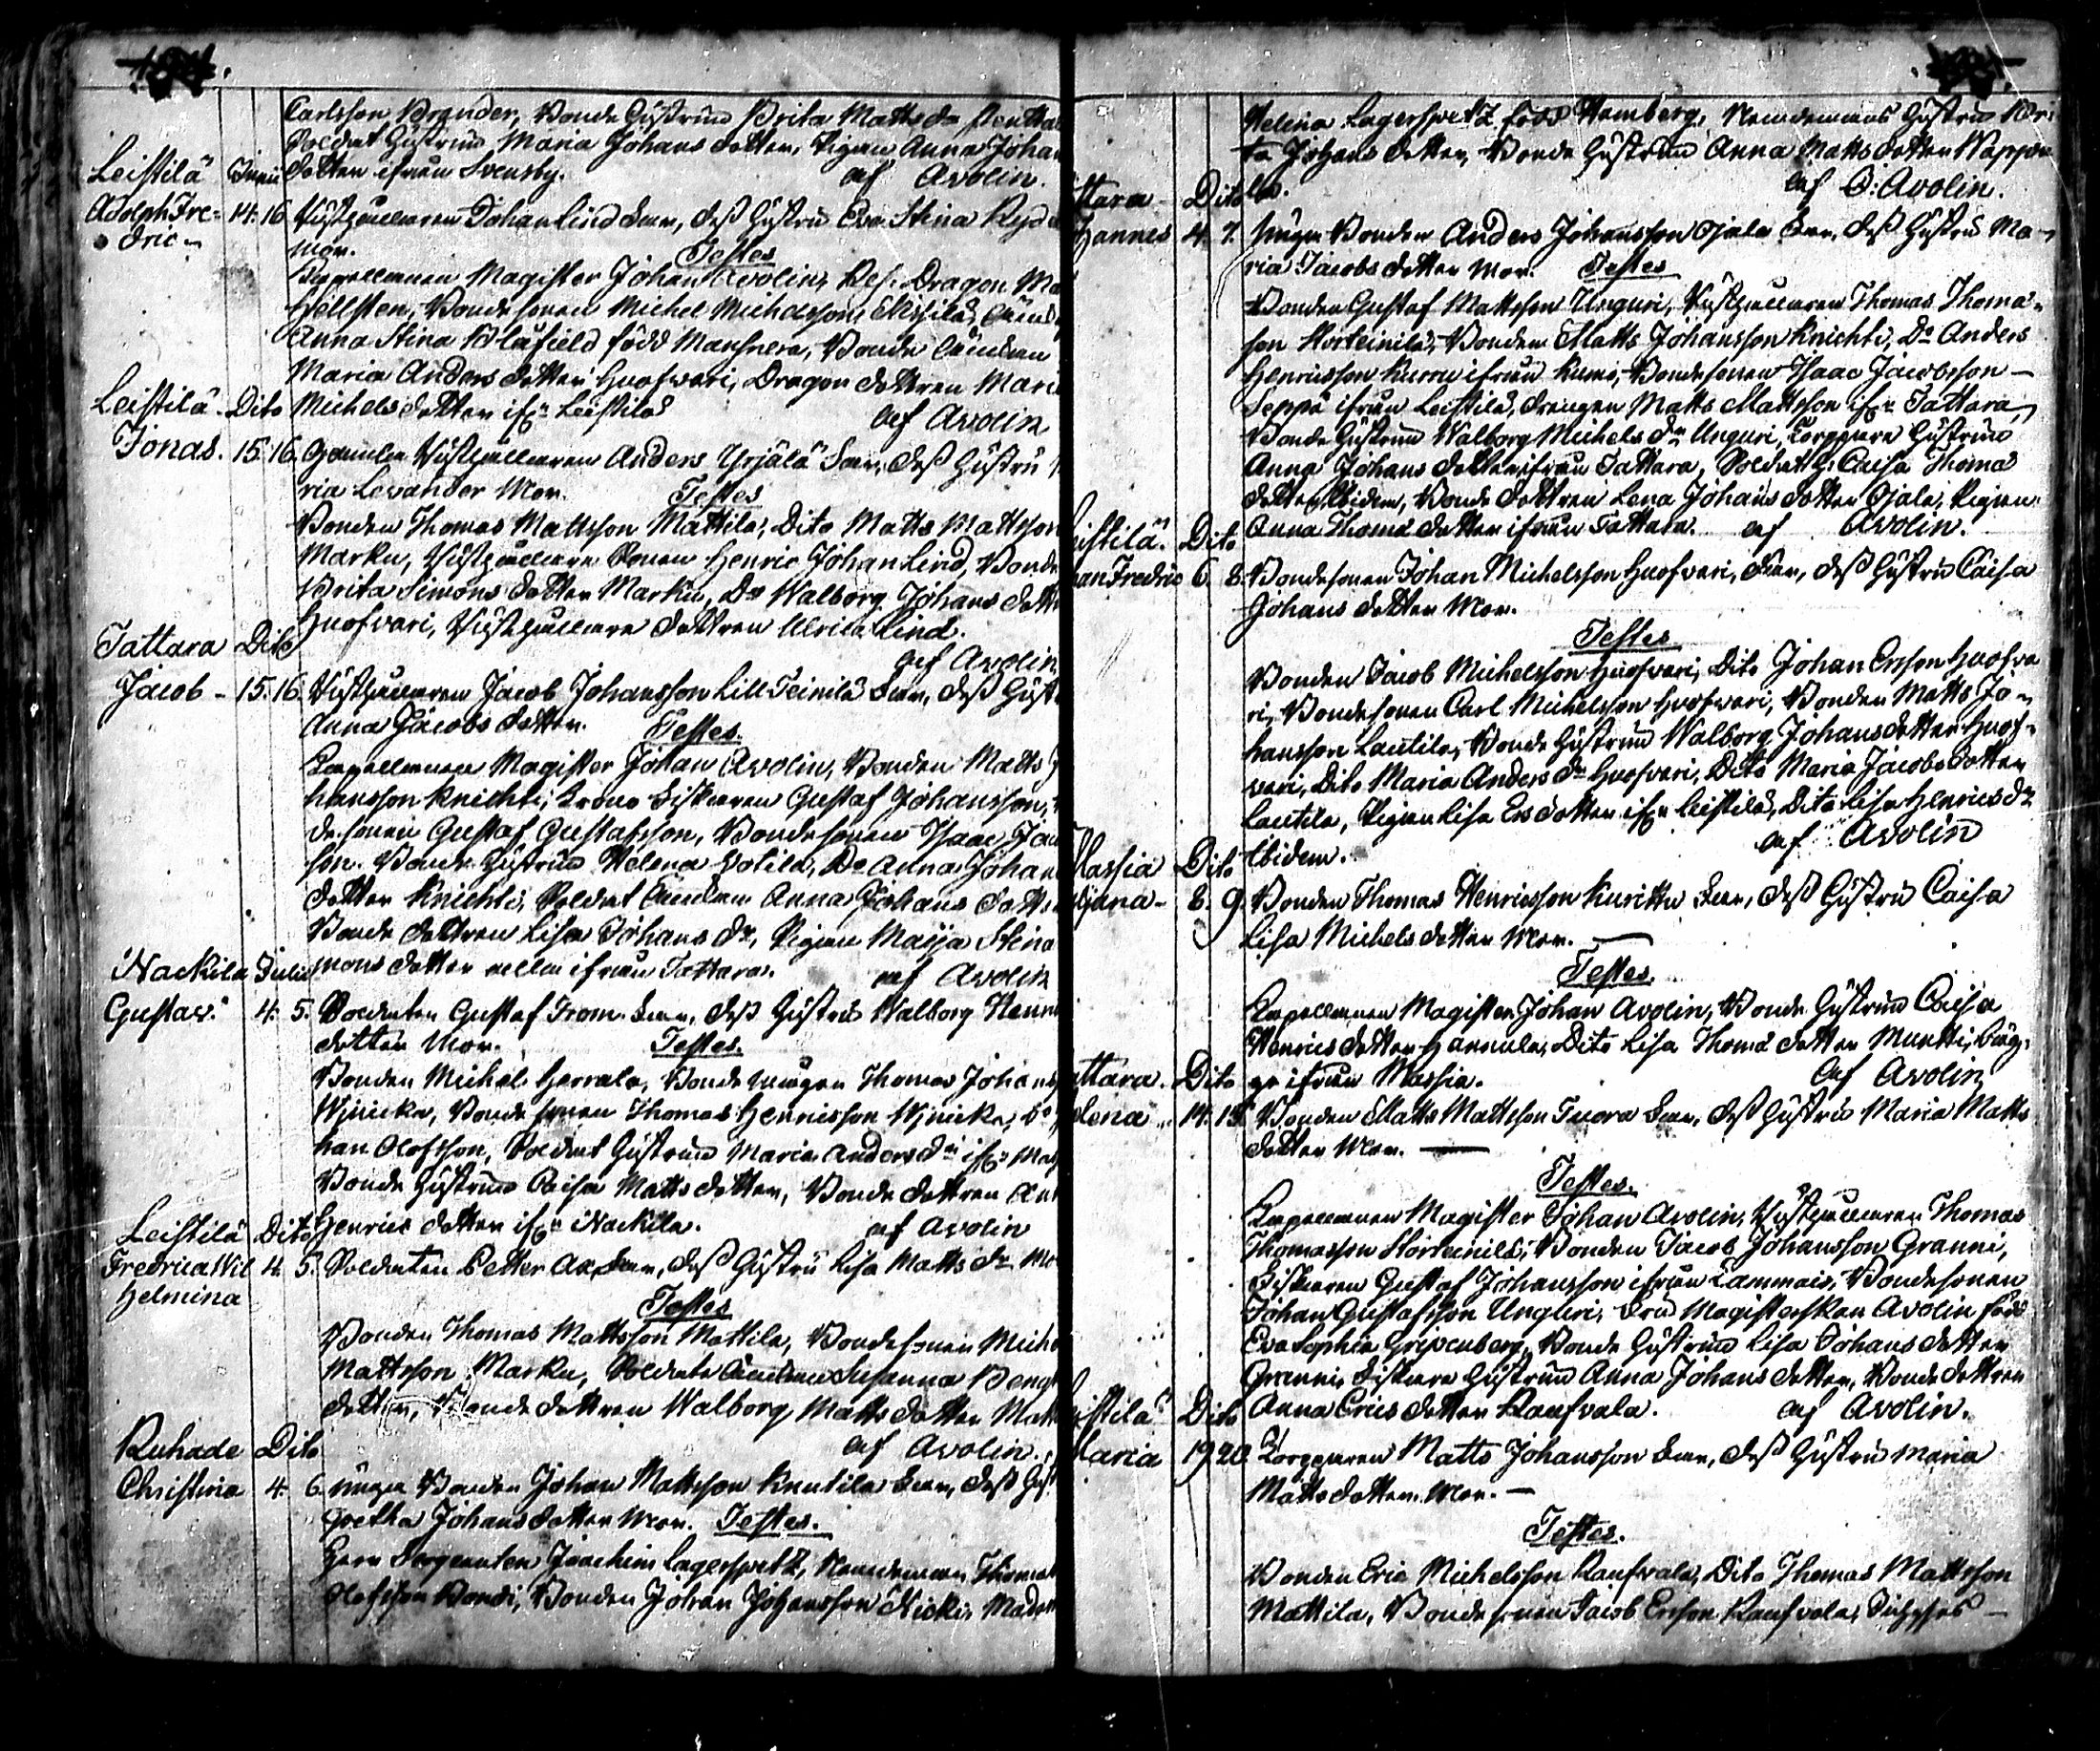 Carlsson Brander, Bonde Hustrun Brita Matts dr
Soldat Hustrun Maria Johans dotter, Pigan Anna Johan
Leistilä Junii dotter ifrån Svensby. af Avolin.
Adolph Fre= 14. 16 Inhysingaren Johan Lind Far, dess Hustru Eva Stina
dric Mor. Testes
Capellanen Magister Johan Avolin, Ref. Dragon
Hellsten, Bonde sonen Michel Michelsson
Anna Stina Blåfield född Mansnera, Bonde Änckan
Maria Anders dotter Huofvari, Dragon dottren Mari
Leistilä Dito Michels dotter ifr. Leistilä af Avolin
Jonas. 15. 16. Gamla Anders Yrjälä Far, dess Hustru
ria Levander Mor. Testes
Bonden Thomas Mattsson Mattila, Dito Matts Mattsson
Marku, Sonen Henric Johan Lind, Bonde
Brita Simons dotter Marku, Do Walborg Johans dott
Tattara Dito Huofvari, dottren Ulrica Lind.
af Avolin
Jacob - 15. 16. Jacob Johansson Lill Teinilä Far, dess Hust
Anna Jacobs dotter. Testes.
Capellanen Magister Johan Avolin, Bonden Matts
hansson Knichti, Krono Fiskaren Gustaf Johansson,
de sonen Gustaf Gustafsson, Bonde sonen Isaac Jac
son. Bonde Hustrun Helena Do Anna Johan
dotter Knichti, Soldat Änckan Anna Johans dott
Bonde dottren Lisa Johans dr, Pigan Maija Stina
Nackila Julii mons dotter alla ifrån Tattara. af Avolin
Gustav. 4. 5. Soldaten Gustaf From Far, dess Hustru Walborg
dotter Mor. Testes.
Bonden Michel Herrala, Bonde mågen Thomas Johans
Wjnicka, Bonde sonen Thomas Henricsson Wjnicka,
han Olofsson, Soldat Hustrun Maria Anders dr ifr.
Bonde Hustrun Caisa Matts dotter, Bonde dottren
Leistilä Dito Henrics dotter ifr. Nackila. af Avolin
Fredrica Wil 4. 5. Soldaten Petter Ax Far, dess Hustru Lisa Matts dr Mo
helmina Testes
Bonden Thomas Mattsson Mattila, Bonde sonen Miche
Mattsson Marku, Soldats Änckan Susanna Bengt
dotter, Bonde dottren Walborg Matts dotter Matt
Ruhade Dito af Avolin.
Christina 4. 6. unga Bonden Johan Mattsson Knutila Far, dess
gretha Johans dotter Mor. Testes.
Herr Sergeanten Joachim Lagerspetz, Nämdeman Thomas
Olofsson Bondi, Bonden Johan Johansson Nicki,
Helena Lagerspetz född Hamberg, Nämdemans Hustrun Bri
ta Johans dotter, Bonde Hustrun Anna Matts dotter
ttara Dito af O: Avolin.
hannes 4. 7. unga Bonden Anders Johansson Ojala Far, dess Hustru Ma-
ria Jacobs dotter Mor. Testes
Bonden Gustaf Mattsson Unguri, Thomas Thoma=
son Storteinilä, Bonden Matts Johansson Knichti, Do Anders
Henricsson Kurru ifrån Kumo, Bonde sonen Isaac Jacobsson
Seppä ifrån Leistilä, drengen Matts Mattsson ifr. Tattara,
Bonde Hustrun Walborg Michels dr Unguri, Torppare Hustrun
Anna Johans dotter ifrån Tattara, Soldat H: Caisa Thomas
dotter Ibidem, Bonde dottren Lena Johans dotter Ojala, Pigan
eistilä. Dito Anna Thoma dotter ifrån Tattara. af Avolin.
han Fredric 6. 8. Bondesonen Johan Michelsson Huofvari, Far, dess Hustru Caisa
Johans dotter Mor.
Testes
Bonden Jacob Michelsson Huofvari, Dito Johan Ersson Huofva
ri, Bondesonen Carl Michelsson Huofvari, Bonden Matts Jo=
hansson Lautila, Bonde Hustrun Walborg Johans dotter Huof=
vari, Dito Maria Anders dr Huofvari, Dito Maria Jacobs dotter
Lautila, Pigan Lisa Ers dotter ifr. Leistilä, Dito Lisa Henrics dr
Massia Dito Ibidem. af Avolin
8. 9. Bonden Thomas Henricsson Kurittu Far, dess Hustru Caisa
Lisa Michels dotter Mor.
Testes.
Capellanen Magister Johan Avolin, Bonde Hustrun Caisa
Henrics dotter Hannula, Dito Lisa Thoma dotter Muntti, bäg=
attara. Dito ge ifrån Massia. af Avolin
elena 14. 15. Bonden Matts Mattsson Tuora Far, dess Hustru Maria Matts
dotter Mor.
Testes.
Capellanen Magister Johan Avolin, Thomas
Thomasson Storteinilä, Bonden Jacob Johansson Granni,
Fiskaren Gustaf Johansson ifrån Lammais, Bondesonen
Johan Gustafsson Unguri, Frun Magisterskan Avolin född
Eva Sophia Gripenberg, Bonde Hustrun Lisa Johans dotter
Granni, Fiskare Hustrun Anna Johans dotter, Bonde dottren
eistilä Dito Anna Erics dotter Raufvala. af Avolin.
Maria 19. 20. Torpparen Matts Johansson Far, dess Hustru Maria
Matts dotter Mor.
Testes.
Bonden Eric Michelsson Raufvala, Dito Thomas Mattsson
Mattila, Bonde sonen Jacob Ersson Raufvala,